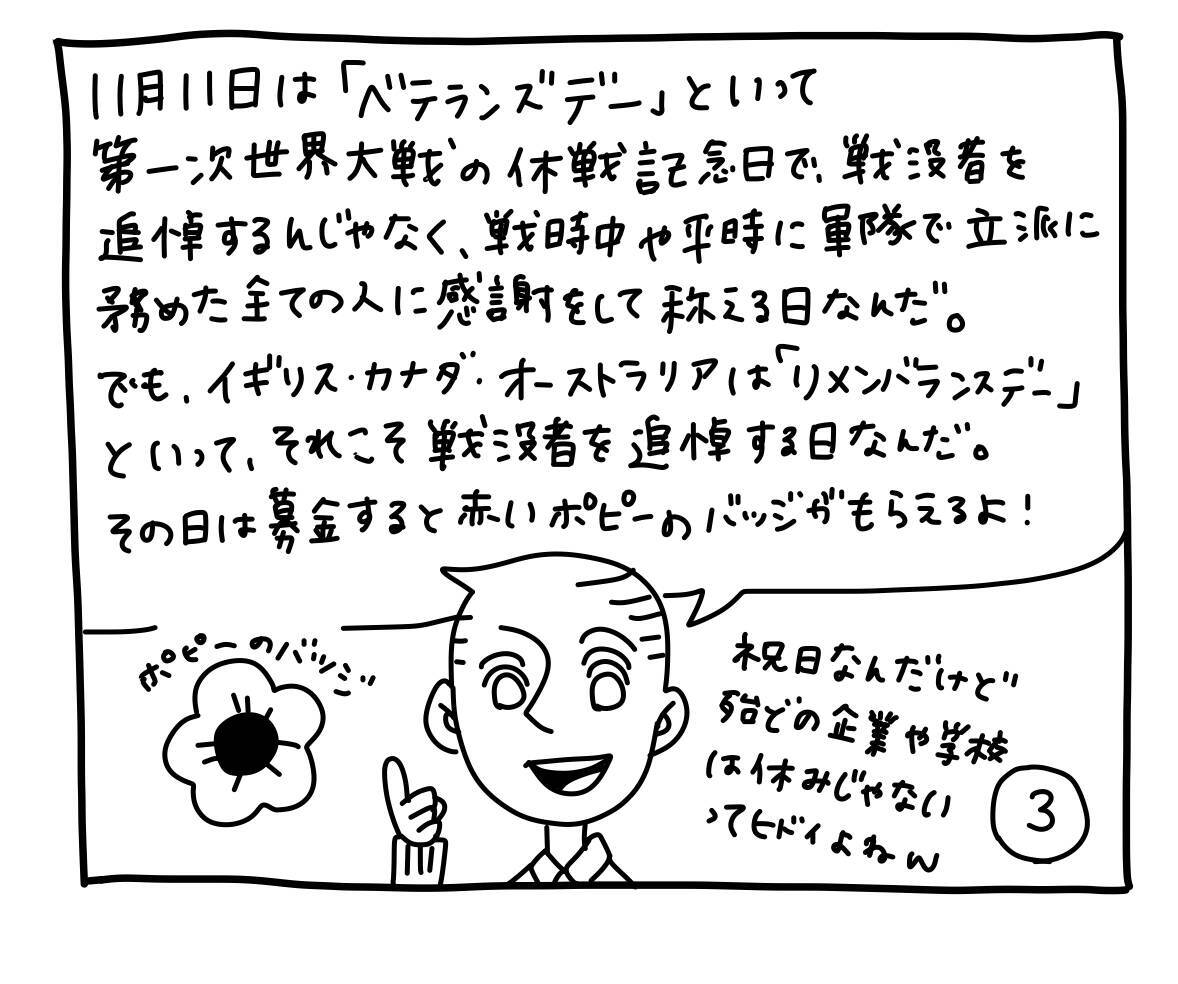 11月11日は「ベテランズデー」といって
第一次世界大戦の休戦記念日で、戦没者を
追悼するんじゃなく、戦時中や平時に軍隊で立派に
務めた全ての人に感謝をして称える日なんだ。
でも、イギリス・カナダ・オーストラリアは「リメンバランスデー」
といって、それこそ戦没者を追悼する日なんだ。
その日は募金すると赤いポピーのバッジがもらえるよ!
ポピーのバッジ
祝日なんだけど
殆どの企業や学校
は休みじゃない
ってヒドイよねw
3